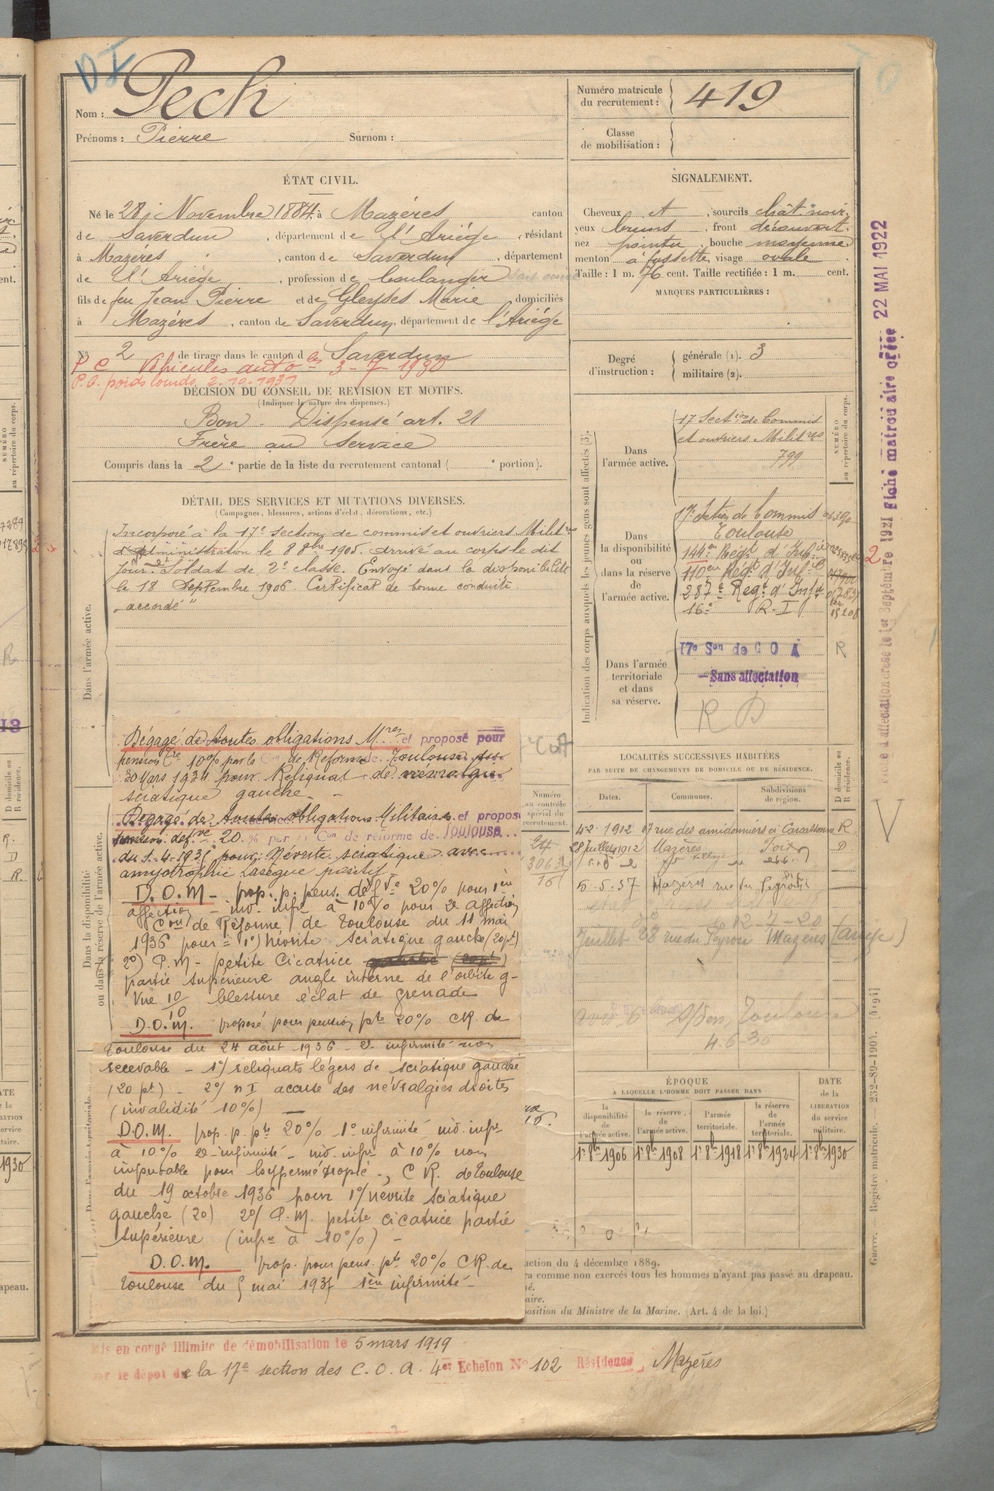 D I
Nom : Pech
Prénoms : Pierre Surnom :
Numéro matricule du recrutement : 419
Classe de mobilisation :
ÉTAT CIVIL.
Né le 28 Novembre 1884 à Mazères canton
de Saverdun, département de l'Ariège, résidant
à Mazères, canton de Saverdun, département
de l'Ariège, profession de boulanger
fils de feu Jean Pierre et de Gleyses Marie, domiciliés
à Mazères, canton de Saverdun, département de l'Ariège
N° 2 de tirage dans le canton de Saverdun
P C Véhicules auto 3-7-1930
P.C. poids lourds 2-10-1931
DÉCISION DU CONSEIL DE RÉVISION ET MOTIFS.
(Indiquer la nature des dispenses.)
Bon. Dispensé art. 21
Frère au service
Compris dans la 2e partie de la liste du recrutement cantonal ( e portion).
SIGNALEMENT.
Cheveux et, sourcils chât. noir,
yeux bruns, front découvert,
nez pointu, bouche moyenne
menton à fossette, visage ovale
Taille : 1 m. 76 cent. Taille rectifiée : 1 m. cent.
MARQUES PARTICULIÈRES :
Degré d'instruction : générale (1). 3
militaire (2).
DÉTAIL DES SERVICES ET MUTATIONS DIVERSES.
(Campagnes, blessures, actions d'éclat, décorations, etc.)
Incorporé à la 17e section de commis et ouvriers Milit res
d'administration le 8 8bre 1905. Arrivé au corps le dit
jour. Soldat de 2e classe. Envoyé dans la disponibilité
le 18 Septembre 1906 Certificat de bonne conduite
"accordé"
Dans l'armée active.
Dans la disponibilité ou dans la réserve de l'armée active.
Dégagé de toutes obligations Mres et proposé pour
pension 10% par la Con de Réforme Toulouse du
20 Mars 1934 pour Reliquat de névralgie
sciatique gauche.
Dégagé de toutes obligations Militaires et proposé
pension défve 20 % par Con de réforme de Toulouse
du 1.4.1935 pour : Névrite sciatique avec
amyotrophie Lasègue positif
D.O.M - prop. p. pens. défve 20% pour 1ère
affection - ind. infre à 10% pour 2e affection
Con de Réforme de Toulouse du 11 mai
1936 pour = 1°) Névrite sciatique gauche (20 pt)
2°) P.M - petite cicatrice
partie supérieure angle interne de l'orbite g-
Vue 10/10 blessure éclat de grenade
D.O.M. proposé pour pension pte 20% CR de
Toulouse du 24 août 1936 - 2e infirmité non
recevable - 1°/ reliquats légers de sciatique gauche
(20 pt) - 2°/ n I accuse des névralgies droites
(invalidité 10%) -
D.O.M. prop. p. pte 20% 1° infirmité ind. infre
à 10% 2e infirmité - ind. infre à 10% non
imputable pour C R. de Toulouse
du 19 octobre 1936 pour 1°/ névrite sciatique
gauche (20) 2°/ P.M. petite cicatrice partie
supérieure (infre à 10%) -
D.O.M. prop. pour pens. pte 20% CR. de
Toulouse du 5 mai 1937 1ère infirmité -
Indication des corps auxquels les jeunes gens sont affectés (3).
NUMÉRO au répertoire du corps.
Dans l'armée active.
17 Section de Commis
et ouvriers Militres
799
Dans la disponibilité ou dans la réserve de l'armée active.
17e Section de Commis
Toulouse
144e Régt d'Infie
110e Régt d'Infie
287e Régt d'Infie
16e R.I
Dans l'armée territoriale et dans sa réserve.
17e Son de C O A R
Sans affectation
R D
LOCALITÉS SUCCESSIVES HABITÉES
PAR SUITE DE CHANGEMENTS DE DOMICILE OU DE RÉSIDENCE.
Dates. Communes. Subdivisions de région. D domicile ou R résidence.
4-2-1912 17 rue des amidonniers Carcassonne R
28 juillet 1912 Mazères Foix D
5-5-37 Mazères rue du
Juillet 38 rue du Peyron Mazères
Toulouse
ÉPOQUE
À LAQUELLE L'HOMME DOIT PASSER DANS
la disponibilité de l'armée active. la réserve de l'armée active. l'armée territoriale. la réserve de l'armée territoriale. DATE de la LIBÉRATION du service militaire.
1er 8bre 1906 1er 8bre 1908 1er 8bre 1918 1er 8bre 1924 1er 8bre 1930
Numéro au contrôle spécial du recrutement.
ction du 4 décembre 1889.
ra comme non exercés tous les hommes n'ayant pas passé au drapeau.
né.
aire.
position du Ministre de la Marine. (Art. 4 de la loi.)
Mis en congé illimité de démobilisation le 5 mars 1919
par le dépôt de la 17e section des C.O.A. 4e Echelon N° 102 Résidence, Mazères
Fiche matriculaire créée 22 MAI 1922
Guerre. — Registre matricule.